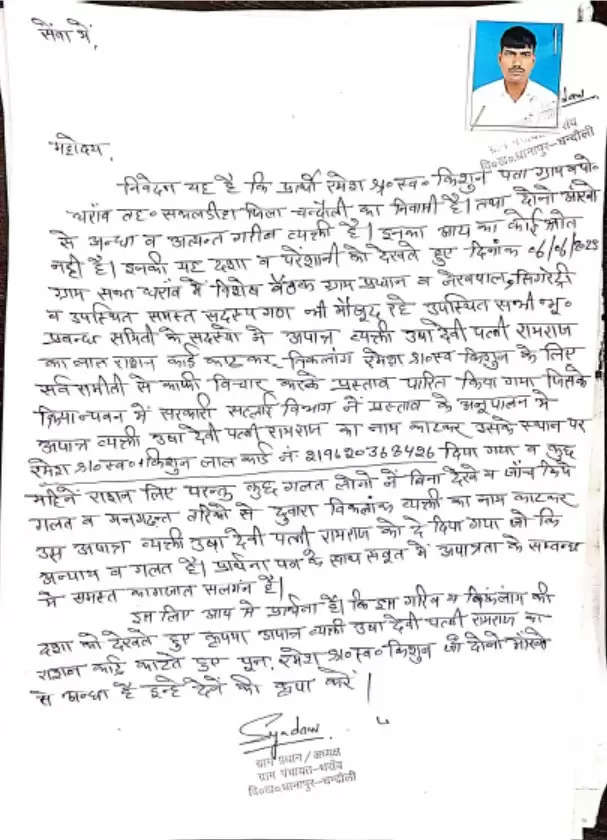 सेवा में,
महोदय,
निवेदन यह है कि प्रार्थी रमेश श्र०स्व० किशुन पता ग्राम व पो०
धरांव तह० सकलडीहा जिला चन्दौली का निवासी है। तथा दोनो आंखो
से अन्धा व अत्यन्त गरीब व्यक्ती है। इनका आय का कोई स्रोत
नही है। इनकी यह दशा व परेशानी को देखते हुए दिनांक 06/06/2023
ग्राम सभा धरांव में विशेष बैठक ग्राम प्रधान व लेखपाल, सिगरेदी
व उपस्थित समस्त सदस्य गण भी मौजुद रहे उपस्थित सभी भू०
प्रबन्ध समिति के सदस्यो में अपात्र व्यक्ती उषा देवी पत्नी रामराज
का लाल राशन कार्ड काट कर, विकलांग रमेश श्र०स्व किशुन के लिए
सर्व समीती से काफी विचार करके प्रस्ताव पारित किया गया जिसके
क्रियान्वन में सरकारी सप्लाई विभाग में प्रस्ताव के अनुपालन में
अपात्र व्यक्ती उषा देवी पत्नी रामराज का नाम काटकर उसके स्थान पर
रमेश श्र०स्व० किशुन लाल कार्ड नं० 219620368426 दिया गया व कुछ
महिने राशन लिए परन्तु कुछ गलत लोगो नें बिना देखे व जाँच किये
गलत व मनगढ़न्त तरिको से दुबारा विकलांक व्यक्ती का नाम काटकर
उस अपात्र व्यक्ती उषा देवी पत्नी रामराज को दे दिया गया जो कि
अन्याय व गलत है। प्रार्थना पत्र के साथ सबूत में अपात्रता के सम्बन्ध
में समस्त कागजात सलगंन है।
इस लिए आप से प्रार्थना है। कि इस गरिब व विकंलाग की
दशा को देखते हुए कृपया अपात्र व्यक्ती उषा देवी पत्नी रामराज का
राशन कार्ड काटते हुए पून. रमेश श्र०स्व० किशुन जो दोनो आंखो
से अन्धा है इन्हे देने की कृपा करें।
Syadaw
ग्राम प्रधान / अध्यक्ष
ग्राम पंचायत-धराँव
वि०ख०धानापुर-चन्दौली
वि०ख०धानापुर-चन्दौली